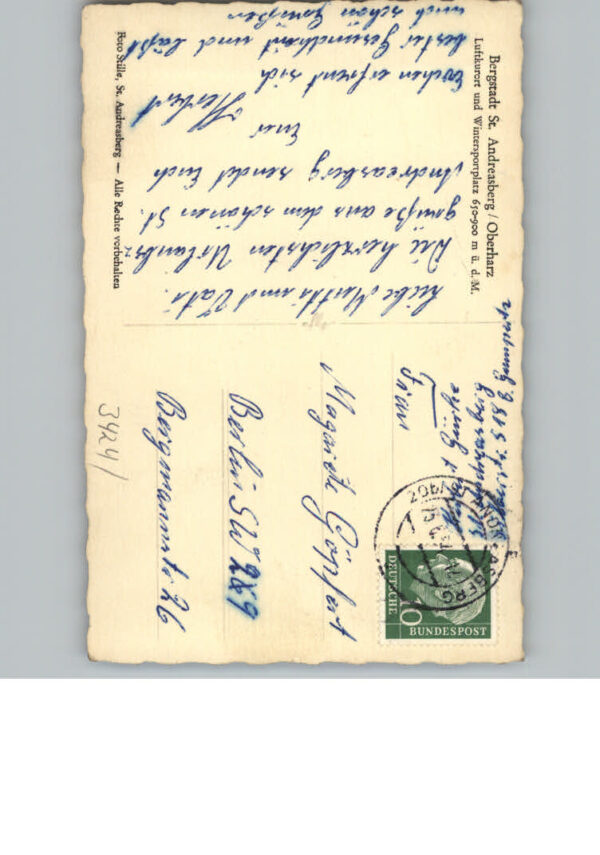 Bergstadt St. Andreasberg / Oberharz
Luftkurort und Wintersportplatz 650-900 m ü. d. M.
Liebe Mutti und Vati!
Die herzlichsten Urlaubs-
grüße aus dem schönen St.
Andreasberg sendet Euch
Euer
Herbert
Lenchen erfreut sich
bester Gesundheit und läßt
auch schön Grüßen
Foto Stille, St. Andreasberg — Alle Rechte vorbehalten
Frau
Magarete Göpfert
Berlin SW 289
Bergmannstr. 26
DEUTSCHE
BUNDESPOST
10
3424/